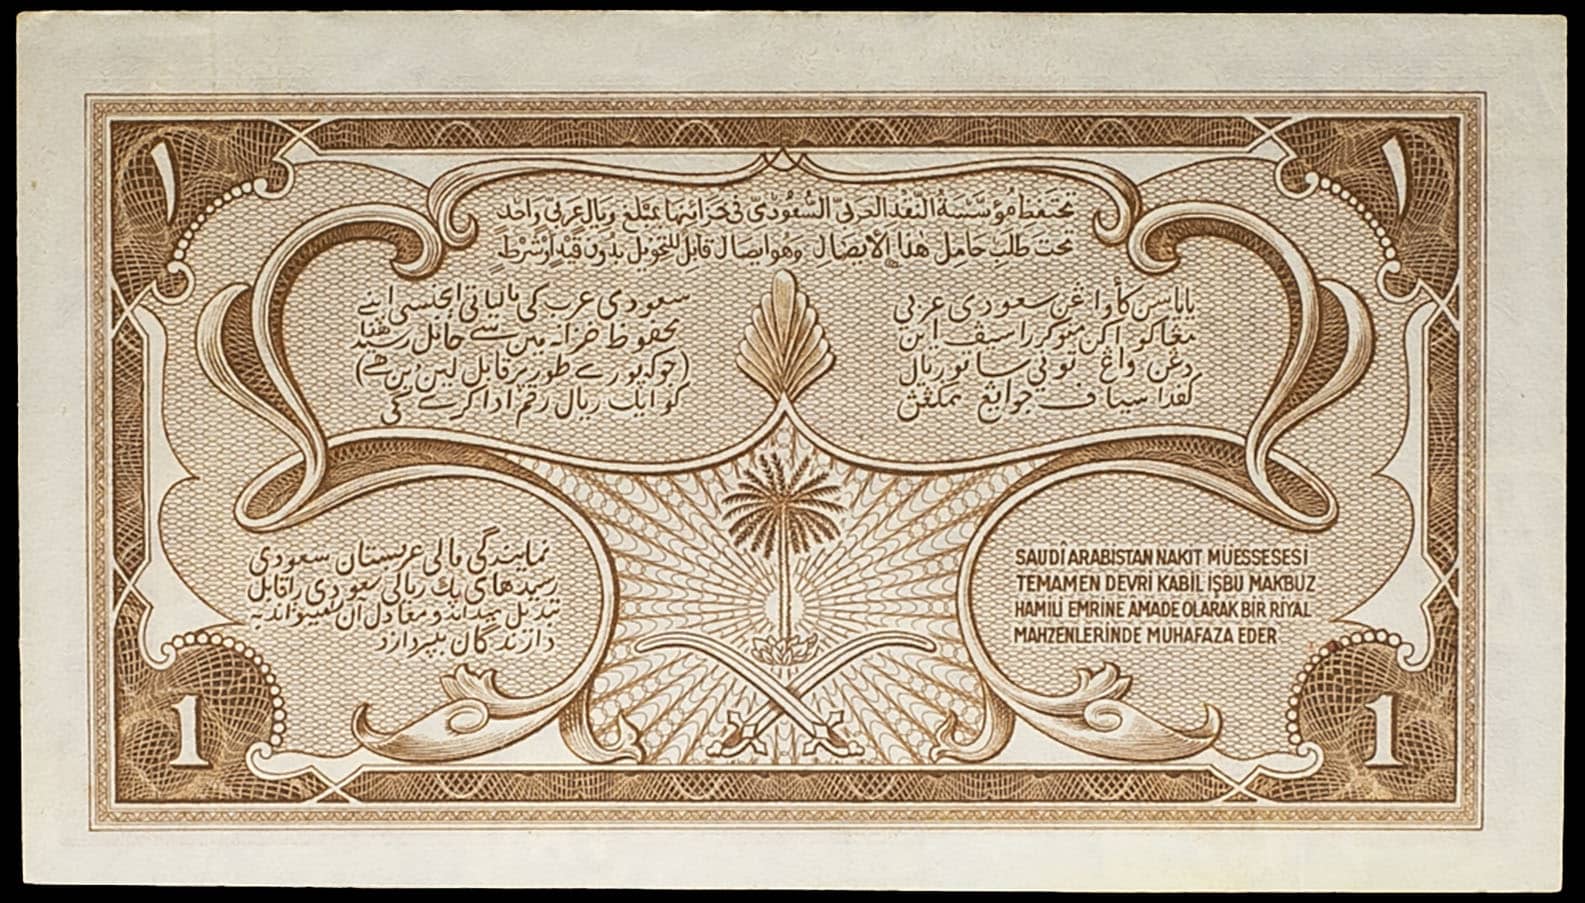 ١
١
تحتفظ مؤسسة النقد العربي السعودي في خزائنها بمبلغ ريال عربي واحد
تحت طلب حامل هذا الايصال وهو ايصال قابل للتحويل بدون قيد أو شرط
باياسن كأواڠن سعودي عربي
مڠاكو اكن موكررا سيڤ اين
دڠن واڠ توني ساتو ريال
كڤدا سياڤ جوا يڠ ممكڠن
سعودی عرب کی مالیاتی ایجنسی اپنے
محفوظ خزانہ میں سے حامل رسید ھذا
(جو کہ پورے طور پر قابل لین دین ھے)
کو ایک ریال رقم ادا کرے گی
نمایندگی مالی عربستان سعودی
رسیدهای یك ریالی سعودی را قابل
تبدیل میداند و معادل آن را میتواند به
دارندگان بپردازد
SAUDÎ ARABİSTAN NAKİT MÜESSESESİ
TEMAMEN DEVRİ KABİL İŞBU MAKBUZ
HAMİLİ EMRİNE AMADE OLARAK BİR RİYAL
MAHZENLERİNDE MUHAFAZA EDER
1
1